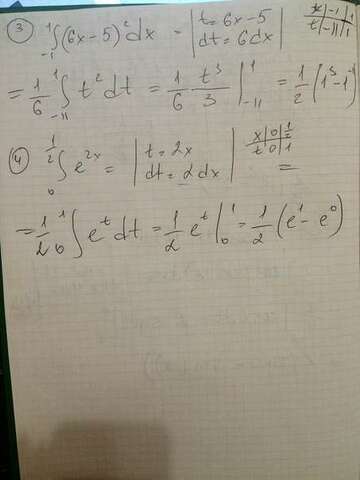 ③ ∫₋₁¹ (6x-5)² dx = | t=6x-5 dt=6dx | x | -1 | 1 t | -11 | 1
= 1/6 ∫₋₁₁¹ t² dt = 1/6 t³/3 |₋₁₁¹ = 1/2 (1³-1
④ ∫₀^(1/2) e^(2x) = | t=2x dt=2dx | x | 0 | 1/2 t | 0 | 1 =
= 1/2 ₀∫¹ e^t dt = 1/2 e^t |₀¹ = 1/2 (e¹-e⁰)